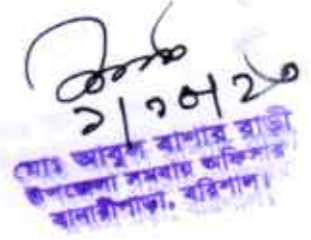 ১/১০/২০
মোঃ আবুল বাশার রাড়ী
উপজেলা সমবায় অফিসার
বানারীপাড়া, বরিশাল।